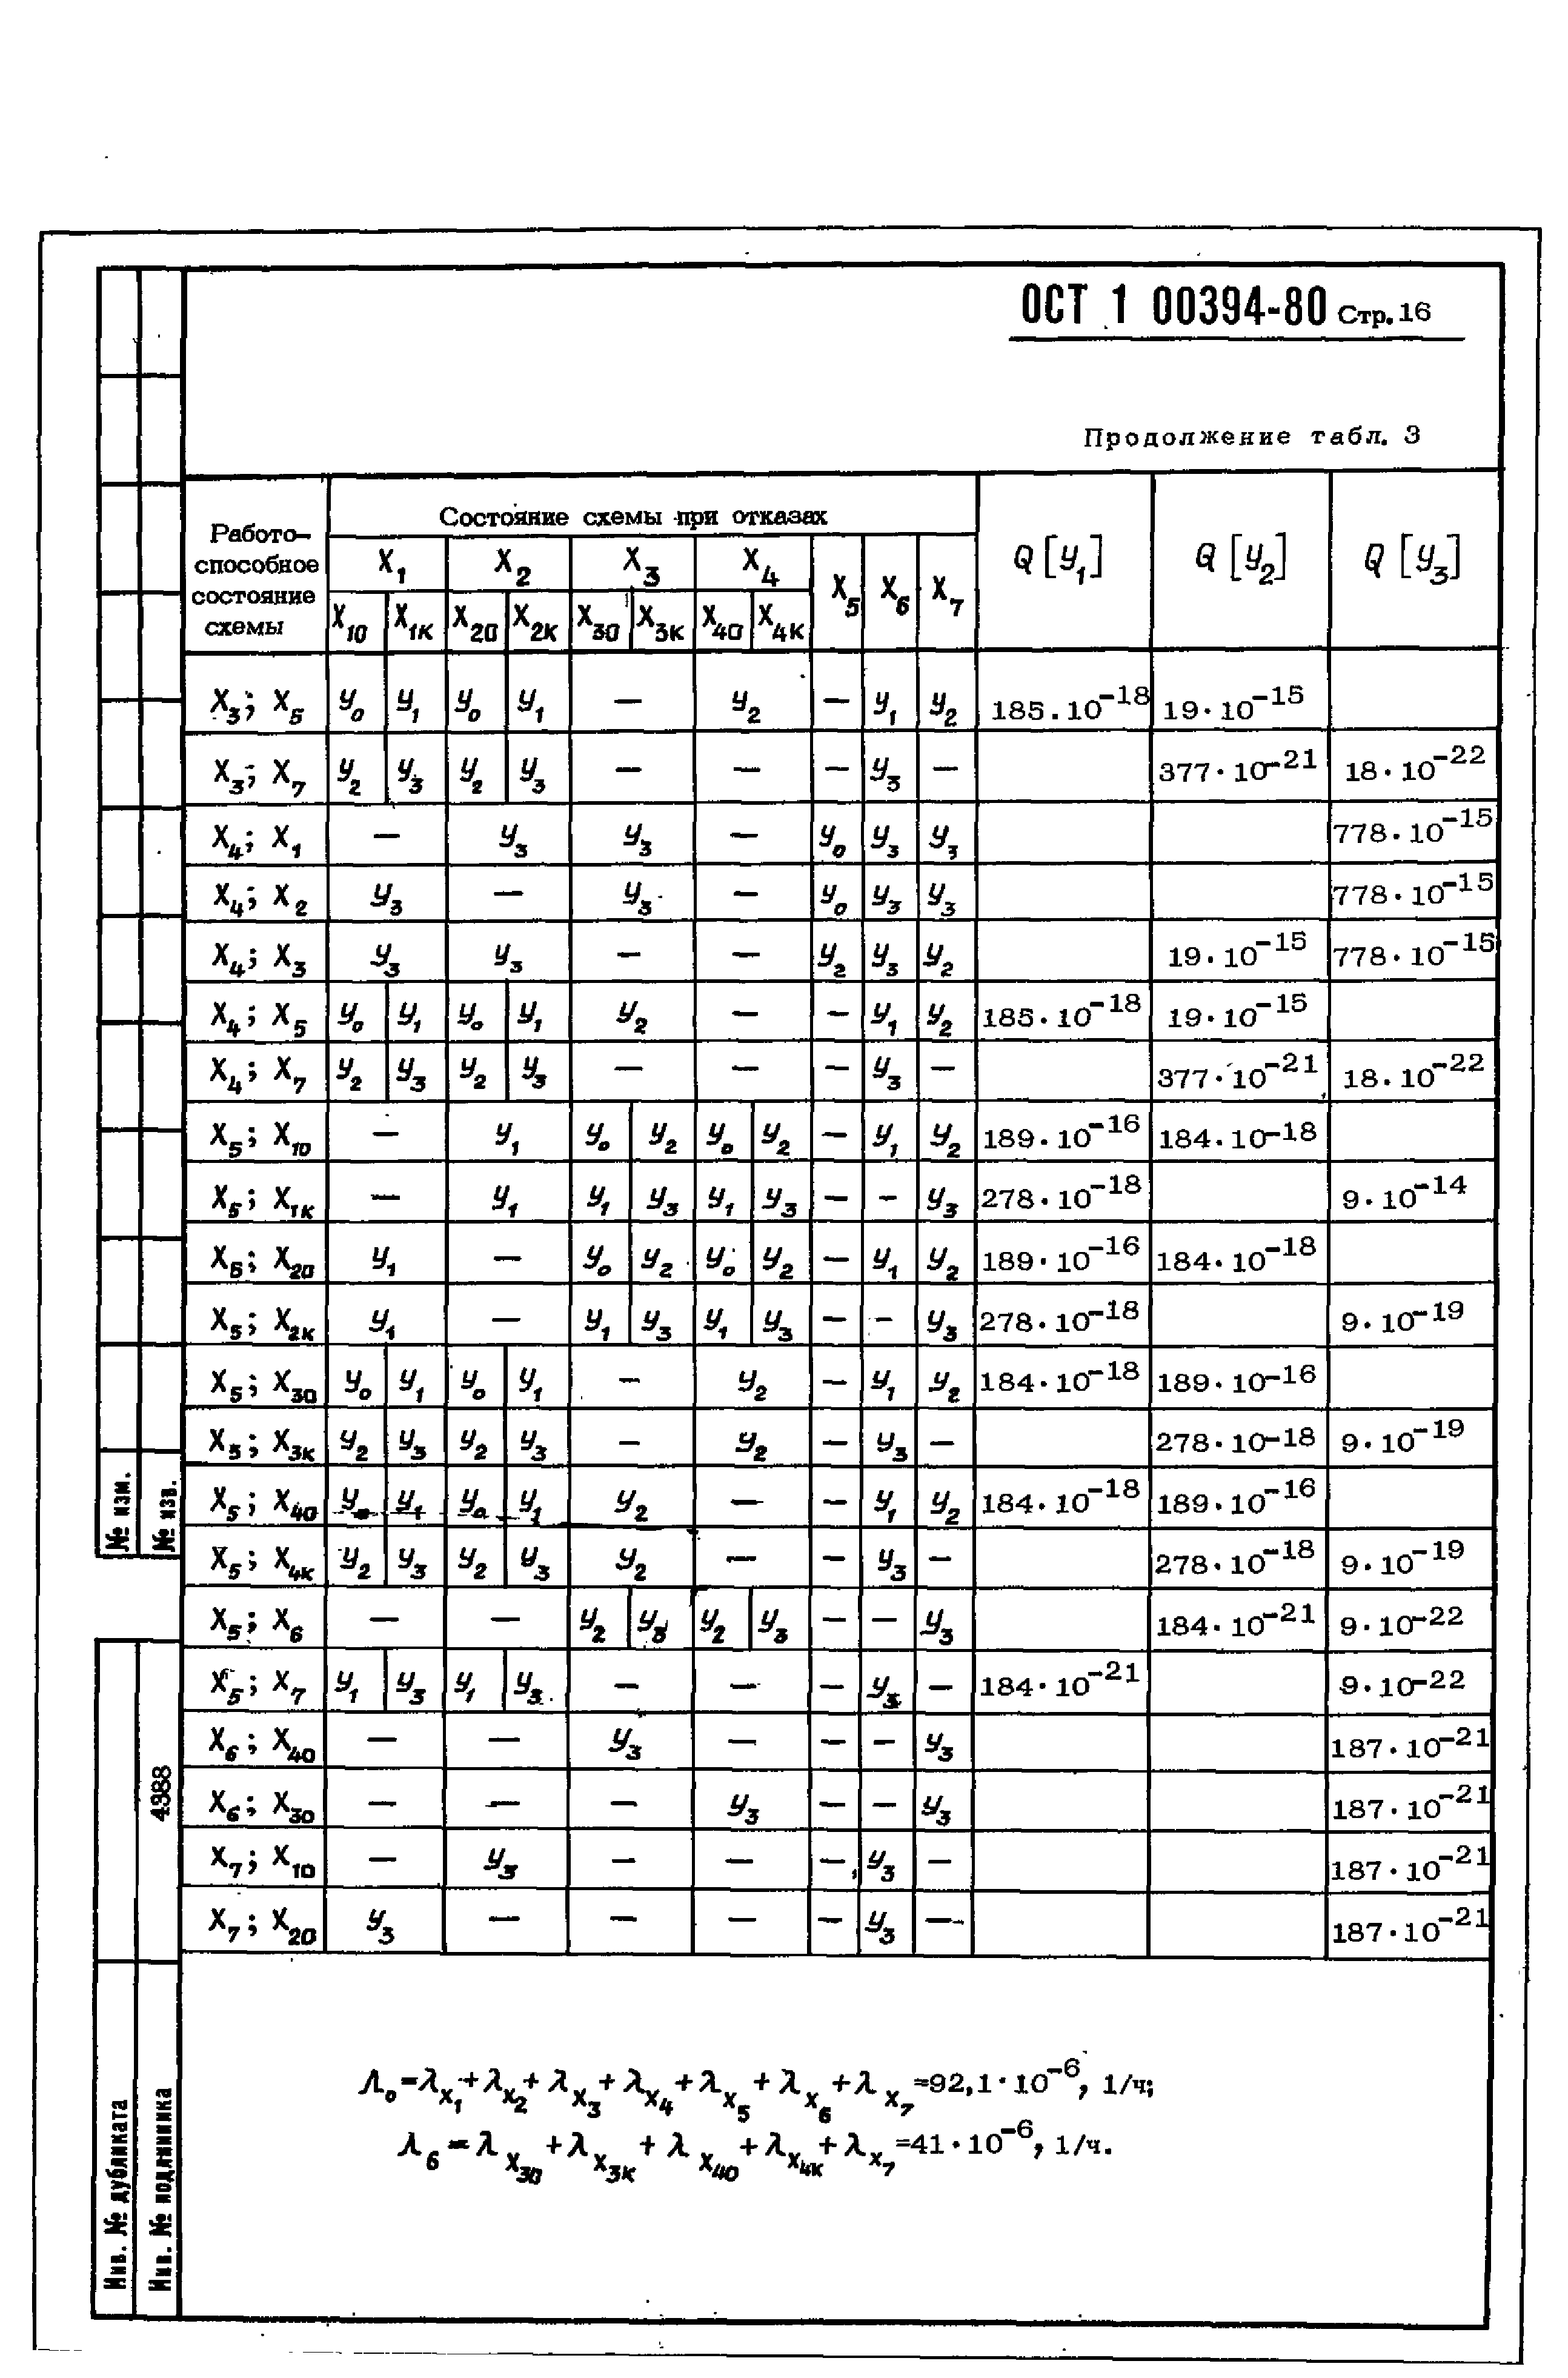 ОСТ 1 00394-80 Стр. 16
Продолжение табл. 3
Работо-
способное
состояние
схемы
Состояние схемы при отказах
X₁ X₂ X₃ X₄ X₅ X₆ X₇ Q[y₁] Q[y₂] Q[y₃]
X₁₀ X₁к X₂₀ X₂к X₃₀ X₃к X₄₀ X₄к
X₃; X₅ y₀ y₁ y₀ y₁ — y₂ — y₁ y₂ 185.10⁻¹⁸ 19·10⁻¹⁵
X₃; X₇ y₂ y₃ y₂ y₃ — — — y₃ — 377·10⁻²¹ 18·10⁻²²
X₄; X₁ — y₃ y₃ — y₀ y₃ y₃ 778·10⁻¹⁵
X₄; X₂ y₃ — y₃ — y₀ y₃ y₃ 778·10⁻¹⁵
X₄; X₃ y₃ y₃ — — y₂ y₃ y₂ 19·10⁻¹⁵ 778·10⁻¹⁵
X₄; X₅ y₀ y₁ y₀ y₁ y₂ — — y₁ y₂ 185·10⁻¹⁸ 19·10⁻¹⁵
X₄; X₇ y₂ y₃ y₂ y₃ — — — y₃ — 377·10⁻²¹ 18·10⁻²²
X₅; X₁₀ — y₁ y₀ y₂ y₀ y₂ — y₁ y₂ 189·10⁻¹⁶ 184·10⁻¹⁸
X₅; X₁к — y₁ y₁ y₃ y₁ y₃ — — y₃ 278·10⁻¹⁸ 9·10⁻¹⁴
X₅; X₂₀ y₁ — y₀ y₂ y₀ y₂ — y₁ y₂ 189·10⁻¹⁶ 184·10⁻¹⁸
X₅; X₂к y₁ — y₁ y₃ y₁ y₃ — — y₃ 278·10⁻¹⁸ 9·10⁻¹⁹
X₅; X₃₀ y₀ y₁ y₀ y₁ — y₂ — y₁ y₂ 184·10⁻¹⁸ 189·10⁻¹⁶
X₅; X₃к y₂ y₃ y₂ y₃ — y₂ — y₃ — 278·10⁻¹⁸ 9·10⁻¹⁹
X₅; X₄₀ y₀ y₁ y₀ y₁ y₂ — — y₁ y₂ 184·10⁻¹⁸ 189·10⁻¹⁶
X₅; X₄к y₂ y₃ y₂ y₃ y₂ — — y₃ — 278·10⁻¹⁸ 9·10⁻¹⁹
X₅; X₆ — — y₂ y₃ y₂ y₃ — — y₃ 184·10⁻²¹ 9·10⁻²²
X₅; X₇ y₁ y₃ y₁ y₃ — — — y₃ — 184·10⁻²¹ 9·10⁻²²
X₆; X₄₀ — — y₃ — — — y₃ 187·10⁻²¹
X₆; X₃₀ — — — y₃ — — y₃ 187·10⁻²¹
X₇; X₁₀ — y₃ — — — y₃ — 187·10⁻²¹
X₇; X₂₀ y₃ — — — — y₃ — 187·10⁻²¹
Λ₀=λX₁+λX₂+λX₃+λX₄+λX₅+λX₆+λX₇=92,1·10⁻⁶, 1/ч;
λ₆=λX₃₀+λX₃к+λX₄₀+λX₄к+λX₇=41·10⁻⁶, 1/ч.
№ изм.
№ изв.
4388
Инв. № дубликата
Инв. № подлинника